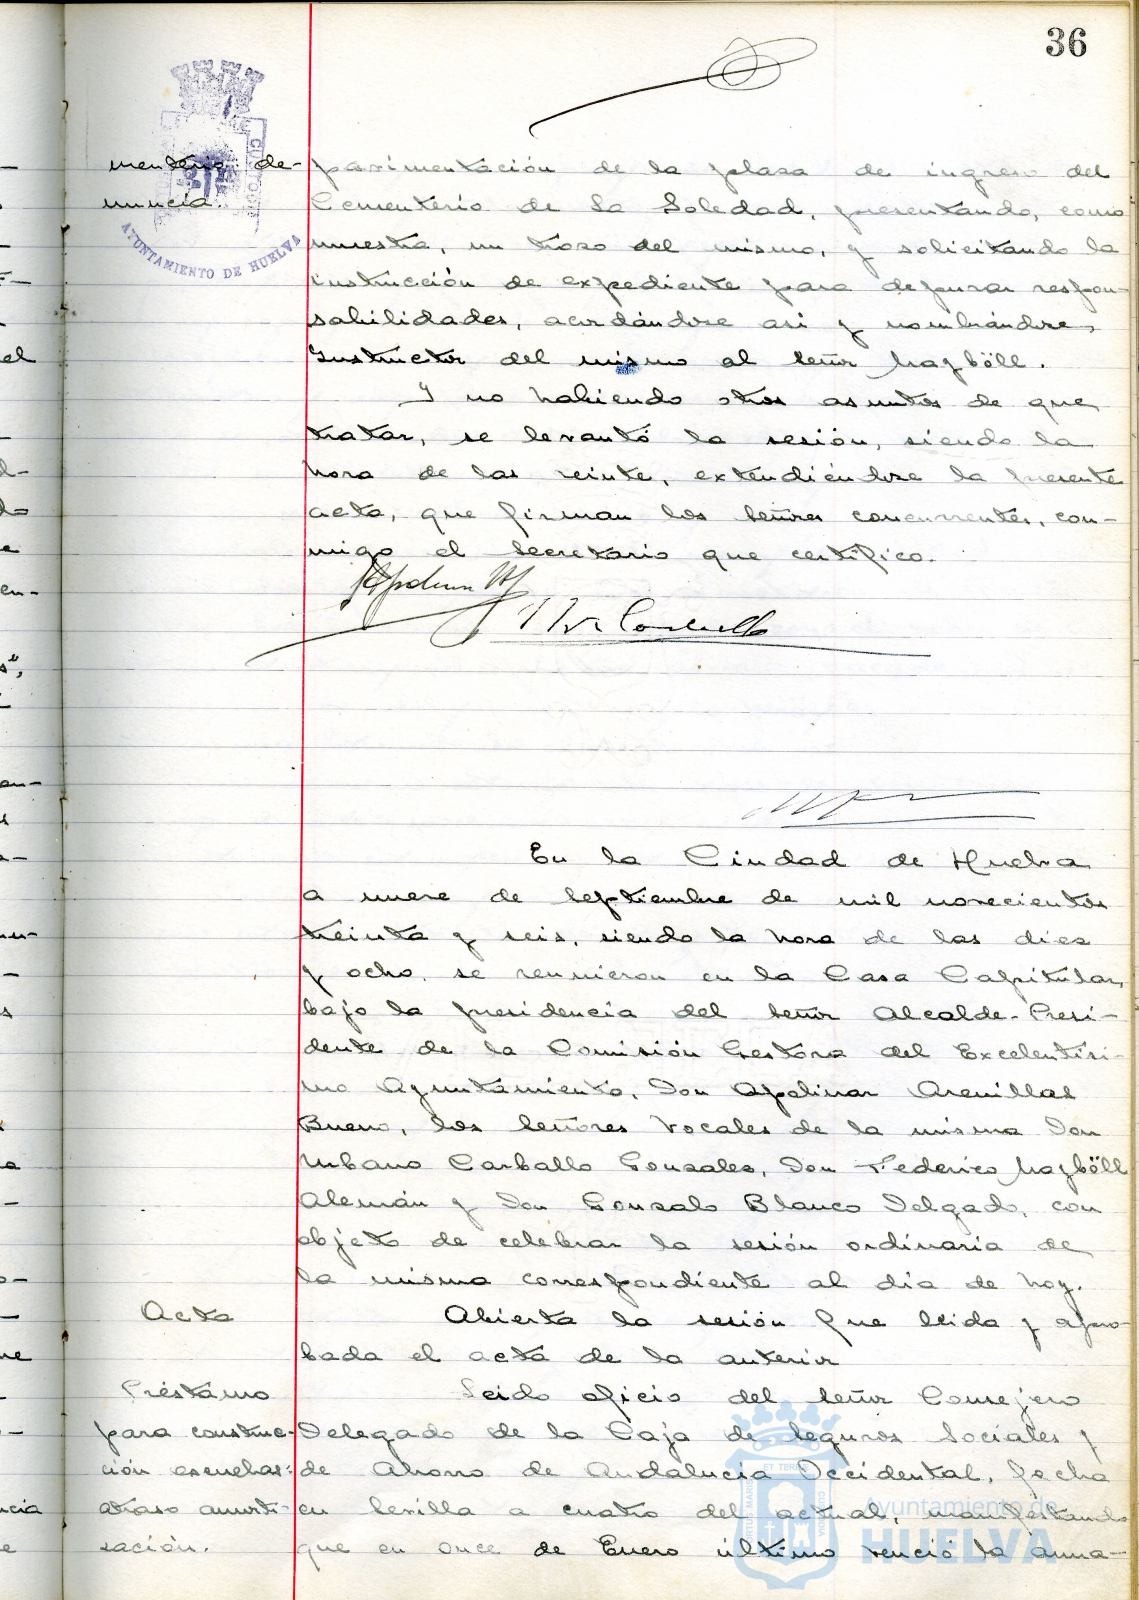 36
menterio de-
nuncia.
AYUNTAMIENTO DE HUELVA
pavimentación de la plaza de ingreso del
Cementerio de La Soledad, presentando, como
muestra, un trozo del mismo, y solicitando la
instrucción de expediente para depurar respon-
sabilidades, acordándose asi y nombrándose,
Instructor del mismo al señor Mazböll.
Y no habiendo otros asuntos de que
tratar, se levantó la sesión, siendo la
hora de las veinte, extendiéndose la presente
acta, que firman los señores concurrentes, con-
migo el Secretario que certifico.
En la Ciudad de Huelva
a nueve de Septiembre de mil novecientos
treinta y seis, siendo la hora de las diez
y ocho, se reunieron en la Casa Capitular,
bajo la presidencia del señor Alcalde-Presi-
dente de la Comisión Gestora del Excelentísi-
mo Ayuntamiento, Don Apolinar Arenillas
Bueno, los señores Vocales de la misma Don
Urbano Carballo Gonzales, Don Federico Mazböll
Alemán y Don Gonzalo Blanco Delgado, con
objeto de celebrar la sesión ordinaria de
la misma correspondiente al dia de hoy.
Acta
Abierta la sesión fue leida y apro-
bada el acta de la anterior
Préstamo
para construc-
ción escuelas:
atraso amorti-
zación.
Leido oficio del señor Consejero
Delegado de la Caja de Seguros Sociales y
de Ahorro de Andalucia Occidental, fecha
en Sevilla a cuatro del actual, manifestando
que en once de Enero último venció la anua-
Ayuntamiento de
HUELVA